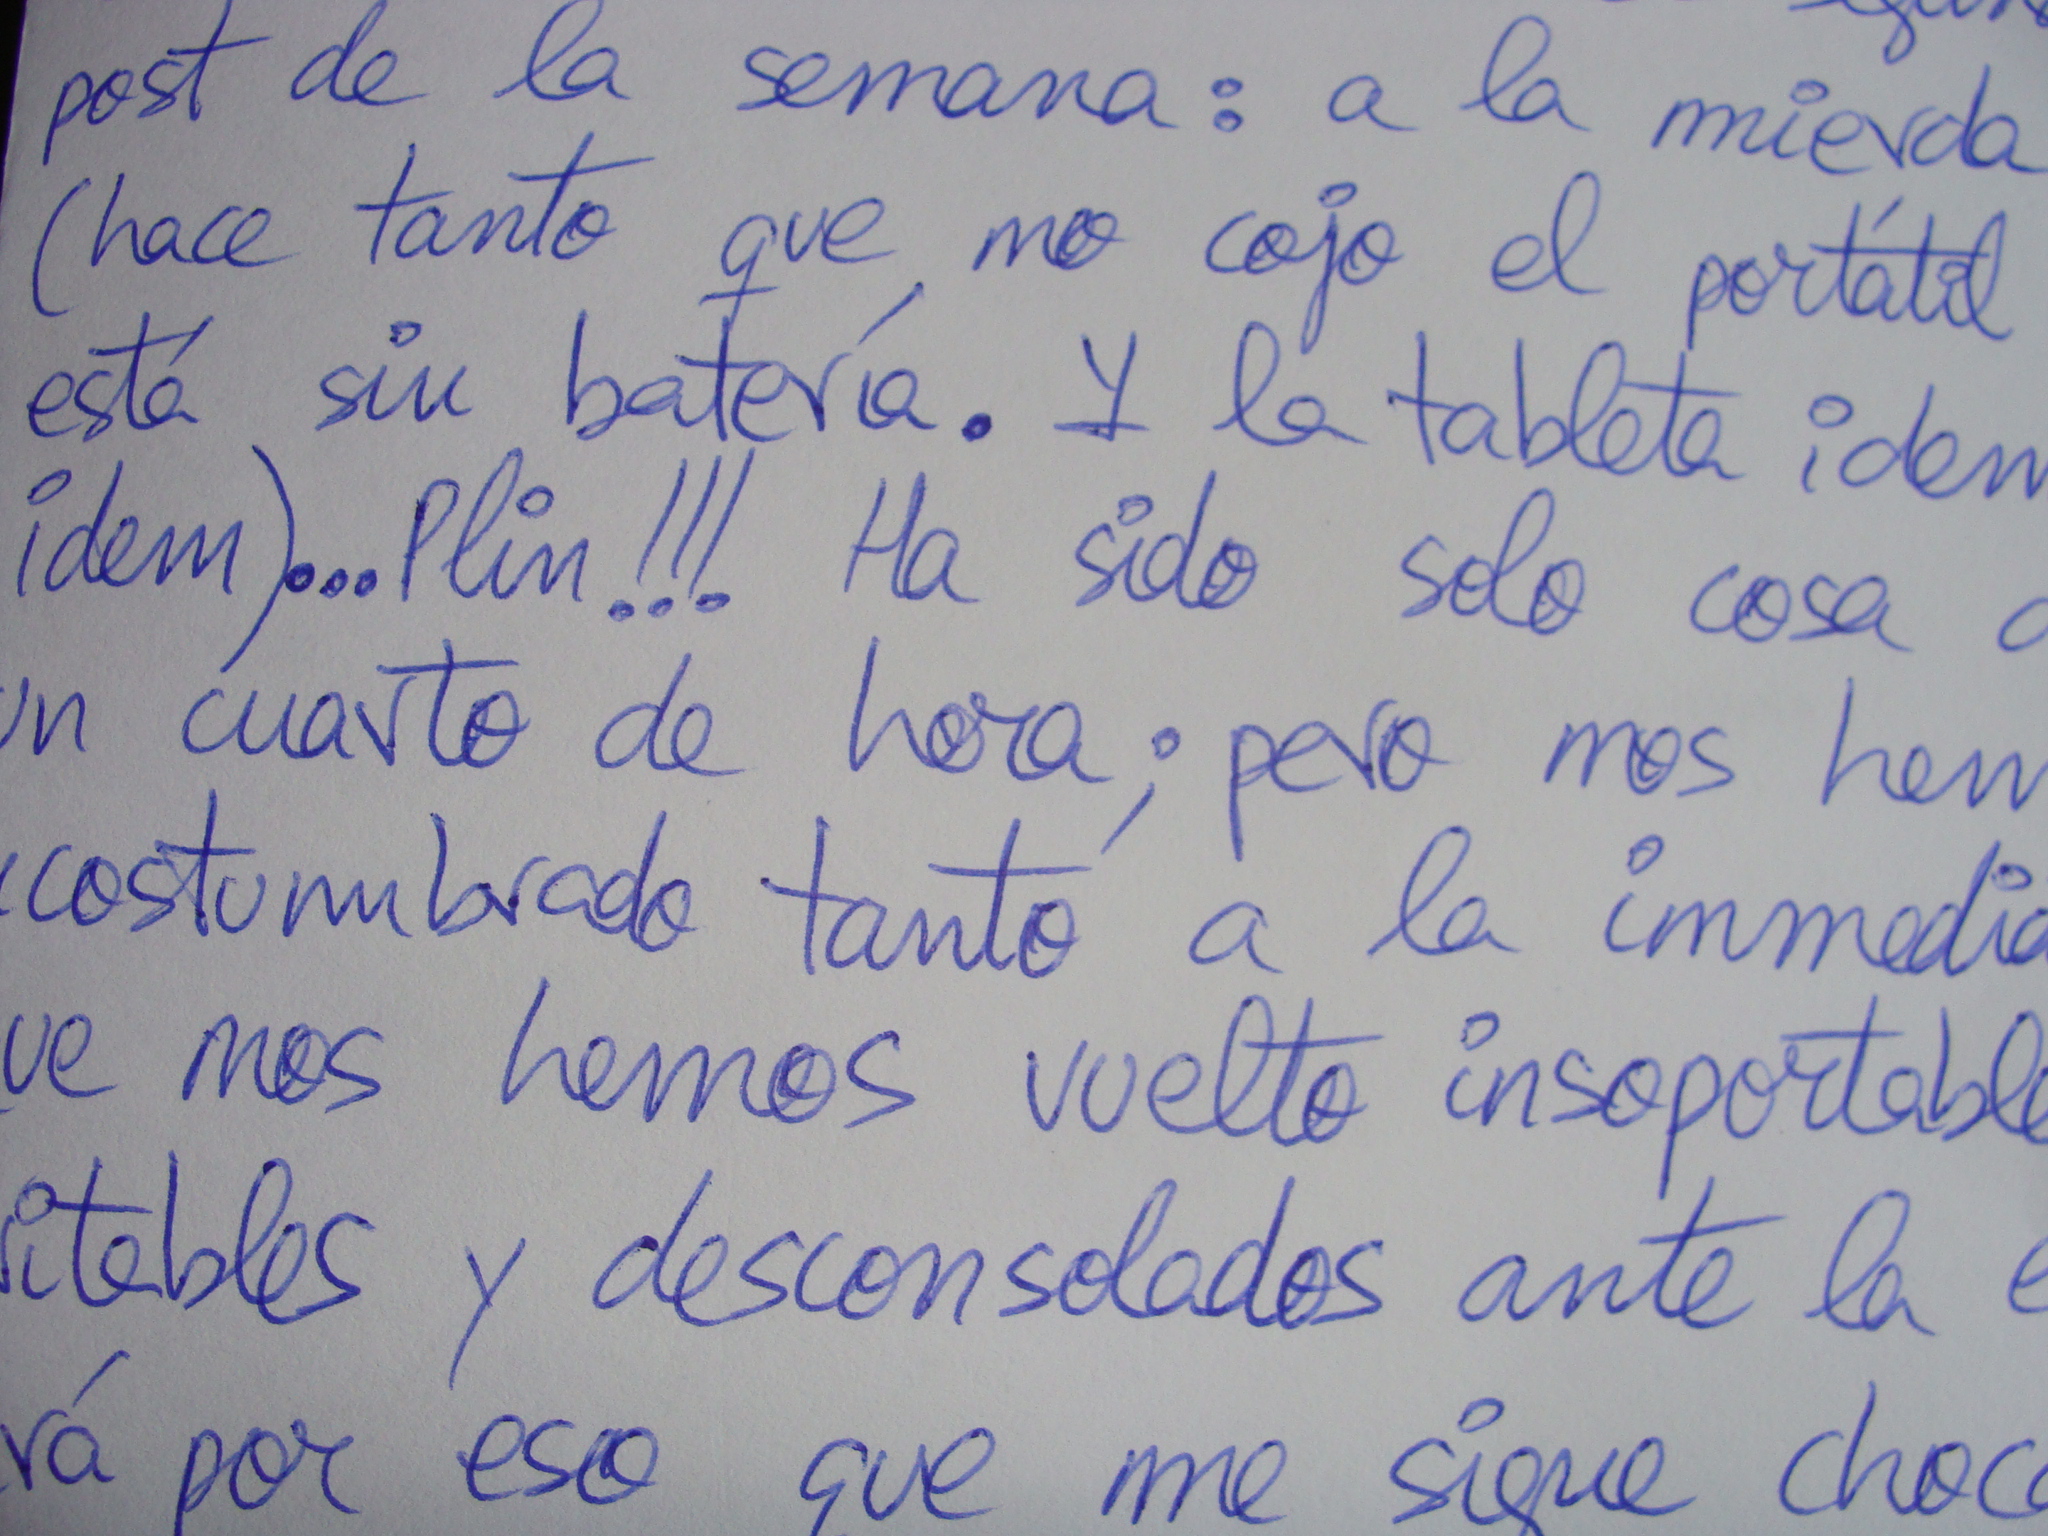 post de la semana: a la mierda
(hace tanto que no cojo el portátil
está sin batería. Y la tableta idem
idem)...Plin!!! Ha sido solo cosa
un cuarto de hora; pero nos hem
costumbrado tanto a la inmedia
ue nos hemos vuelto insoportable
itables y desconsolados ante la e
rá por eso que me sigue choca